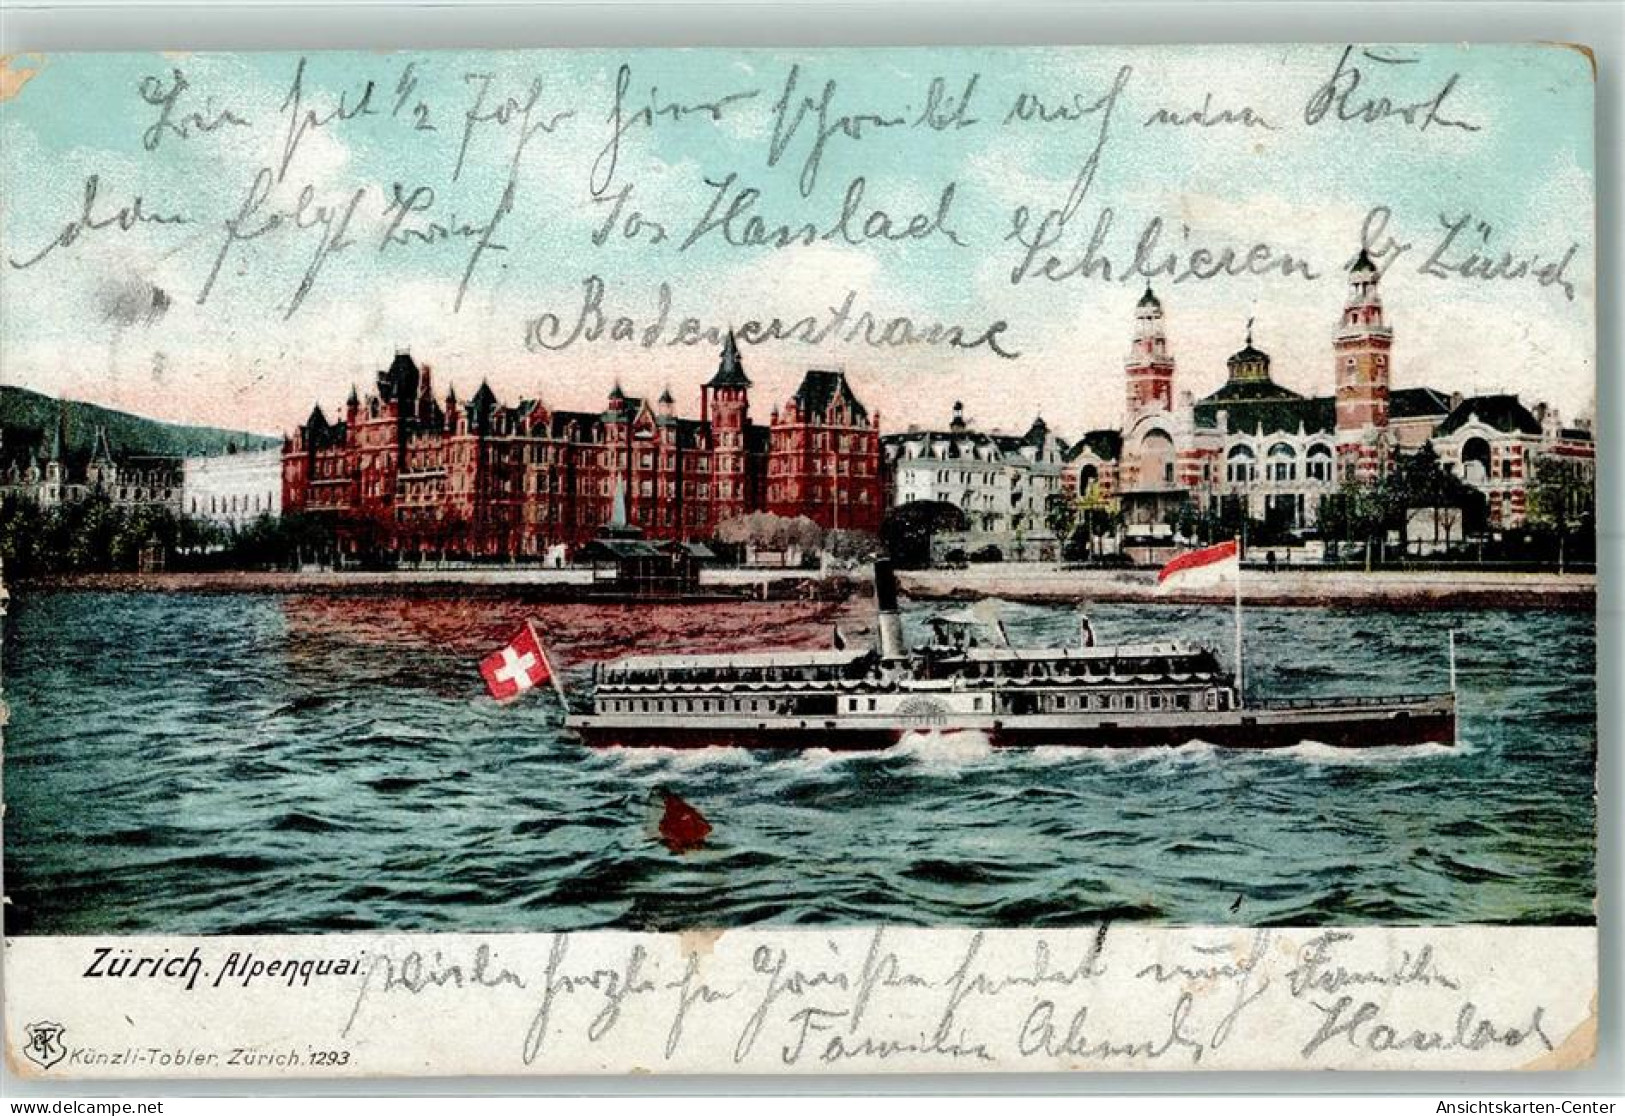 Bin seit 1/2 Jahr hier schreibt auch eine Karte
dan folgt Brief Jos Hasslach Schlieren b/ Zürich
Badenerstrasse
Zürich. Alpenquai. Viele herzliche Grüße sendet euch Familie
Familie Hasslach
Künzli-Tobler, Zürich. 1293.
delcampe.net
Ansichtskarten-Center